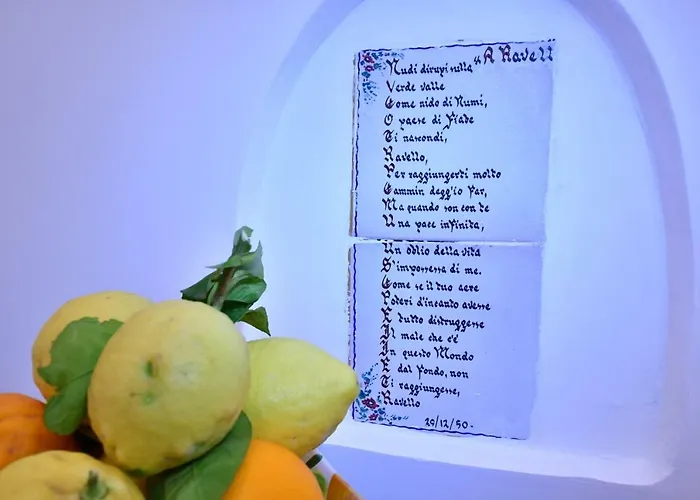 "A Ravell
Nudi dirupi sulla
Verde valle
Come nido di Numi,
O paese di Fiabe
Ti nascondi,
Ravello,
Per raggiungerti molto
Cammin degg'io far,
Ma quando son con te
Una pace infinita,
Un oblio della vita
S'impossessa di me.
Come se il tuo aere
Poteri d'incanto avesse
E tutto distruggesse
Il male che c'è
In questo Mondo
E dal fondo, non
Ti raggiungesse,
Ravello
29/12/50-